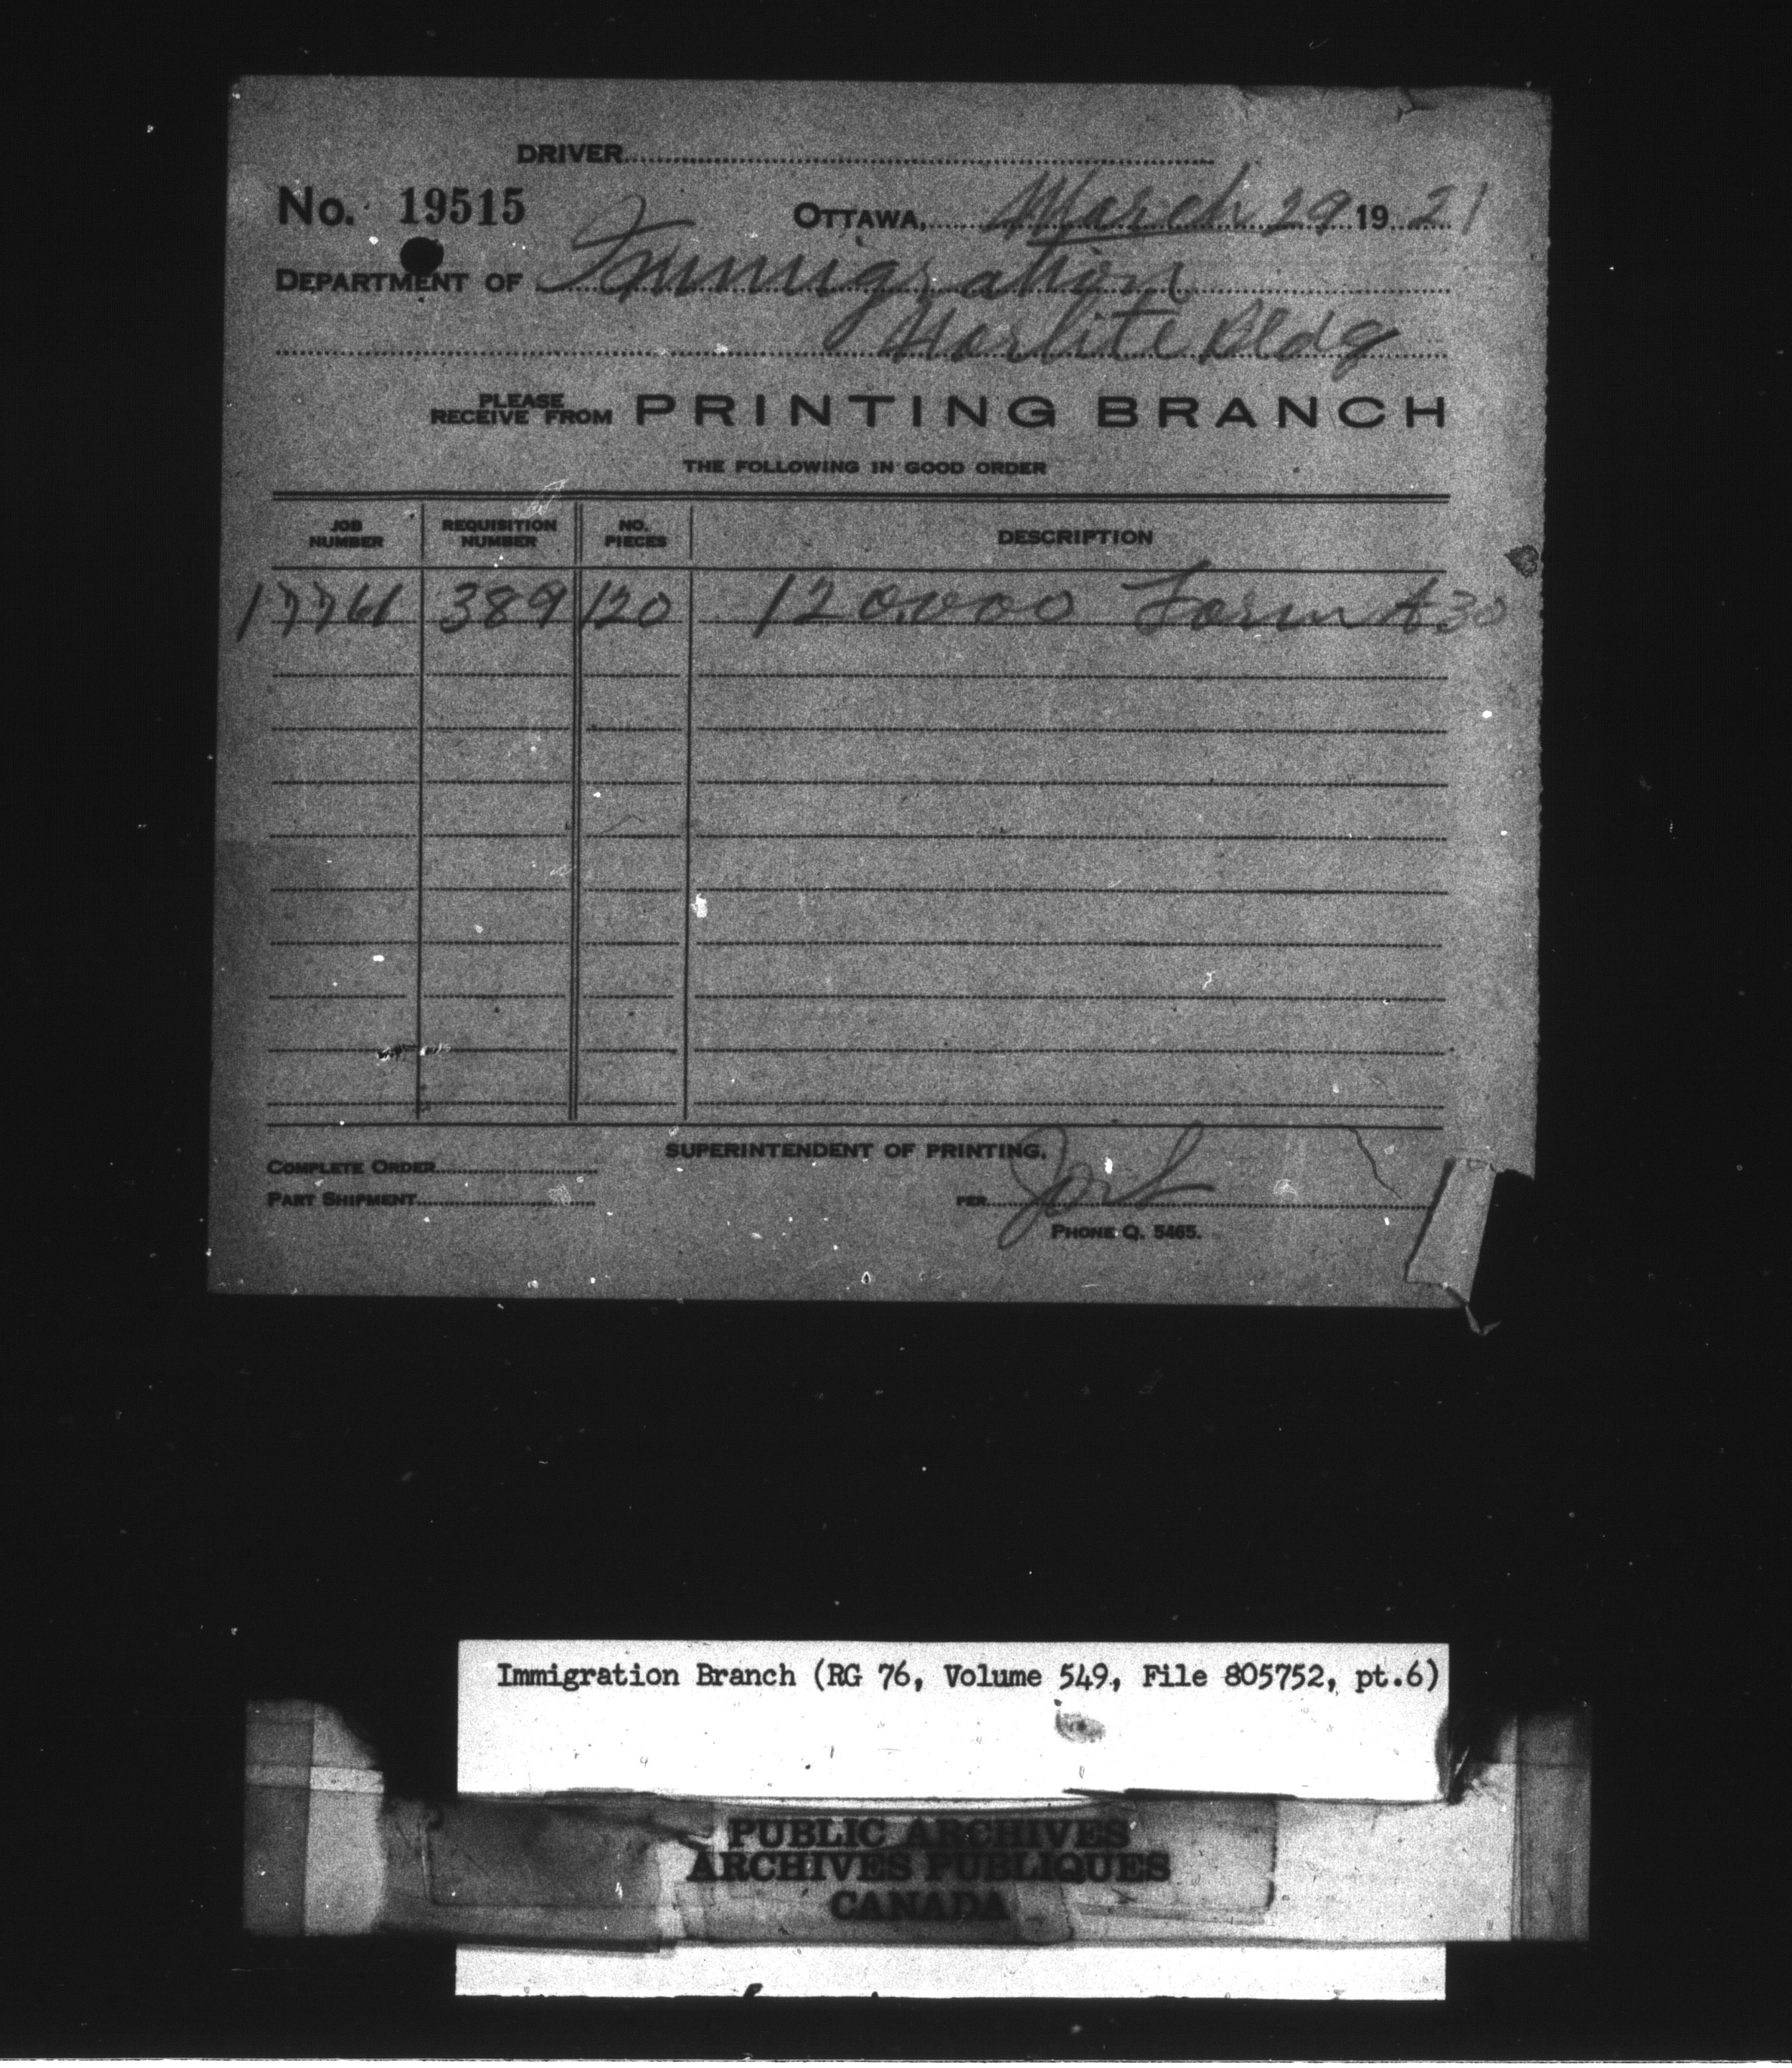 DRIVER
No. 19515 OTTAWA, March 29 19 21
DEPARTMENT OF Immigration
Bldg
PLEASE RECEIVE FROM PRINTING BRANCH
THE FOLLOWING IN GOOD ORDER
JOB NUMBER REQUISITION NUMBER NO. PIECES DESCRIPTION
17761 389 120 120,000 Form A30
SUPERINTENDENT OF PRINTING.
COMPLETE ORDER
PART SHIPMENT PER
PHONE Q. 5465.
Immigration Branch (RG 76, Volume 549, File 805752, pt.6)
PUBLIC ARCHIVES
ARCHIVES PUBLIQUES
CANADA